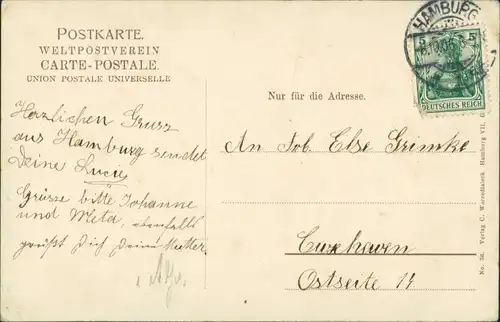 POSTKARTE.
WELTPOSTVEREIN
CARTE-POSTALE.
UNION POSTALE UNIVERSELLE
HAMBURG
5 5
DEUTSCHES REICH
Nur für die Adresse.
Herzlichen Gruss
aus Hamburg sendet
Deine Lucie
Grüsse bitte Johanne
und Meta, ebenfalls
grüßt Dich Deine Mutter.
An Frl. Else Grimke
Cuxhaven
Ostseite 14
No. 36. Verlag C. Worzedialeck Hamburg VII.